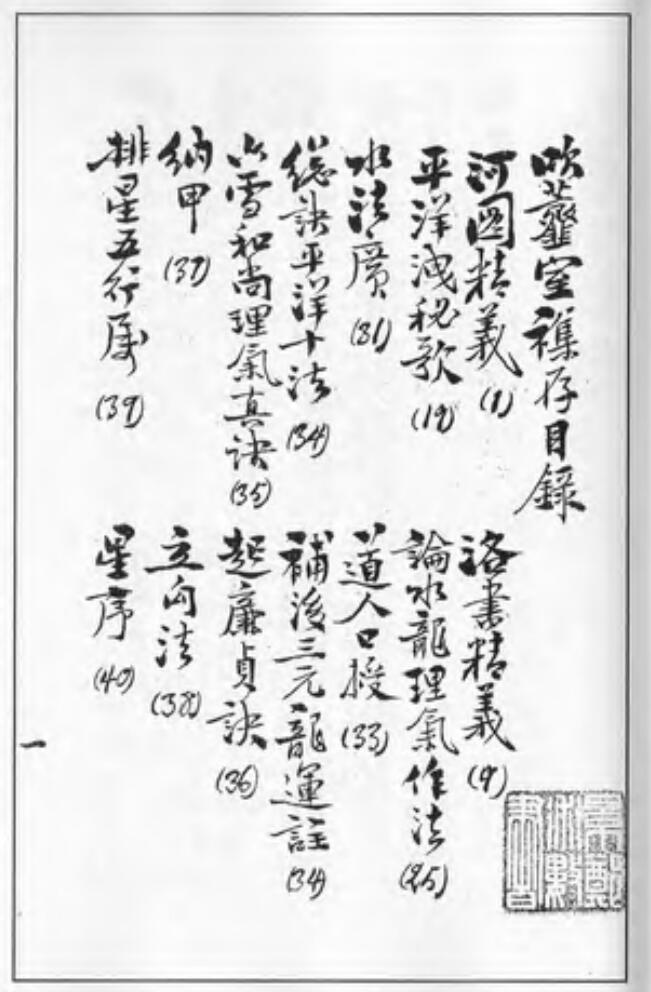 吹虀室襍存目錄
河圖精義 (1) 洛書精義 (9)
平洋洩秘歌 (19) 論水龍理氣作法 (25)
水法廣 (31) 道人口授 (33)
總訣平洋十法 (34) 補後三元龍運註 (34)
六雪和尚理氣真訣 (35) 起廉貞訣 (36)
納甲 (37) 立向法 (38)
排星五行屬 (39) 星序 (40)
一